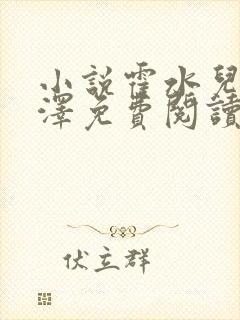 小說霍水兒
澤免費閱讀
伏立群